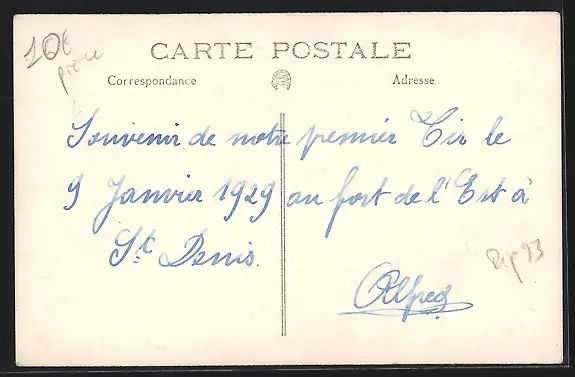 10€
pièce
CARTE POSTALE
Correspondance
Adresse
Souvenir de notre premier Tir le
9 Janvier 1929 au fort de l'Est à
St Denis.
Alfred